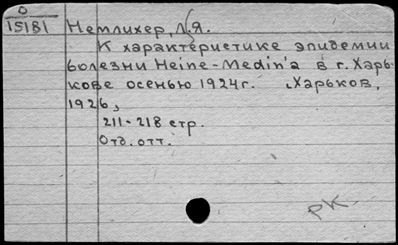 0
15181
Немлихер, Л.Я.
К характеристике эпидемии
болезни Heine-Medin'a в г. Харь-
кове осенью 1924 г. Харьков,
1926,
211-218 стр.
Отд. отт.
РК.